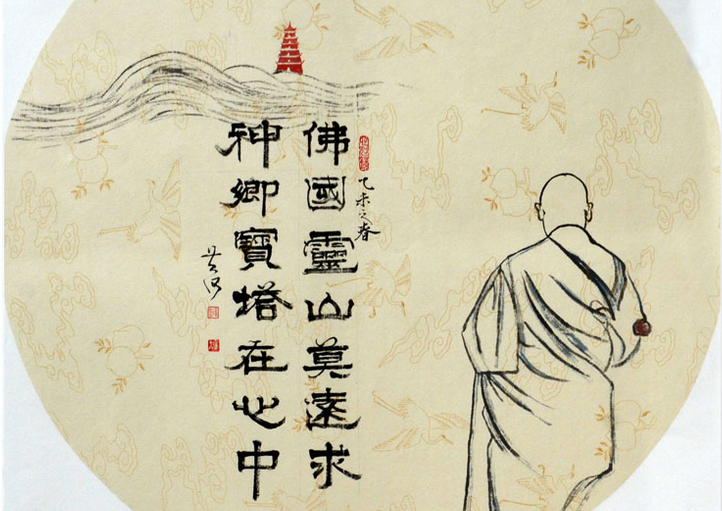 乙未之春
佛國靈山莫遠求
神卿寶塔在心中